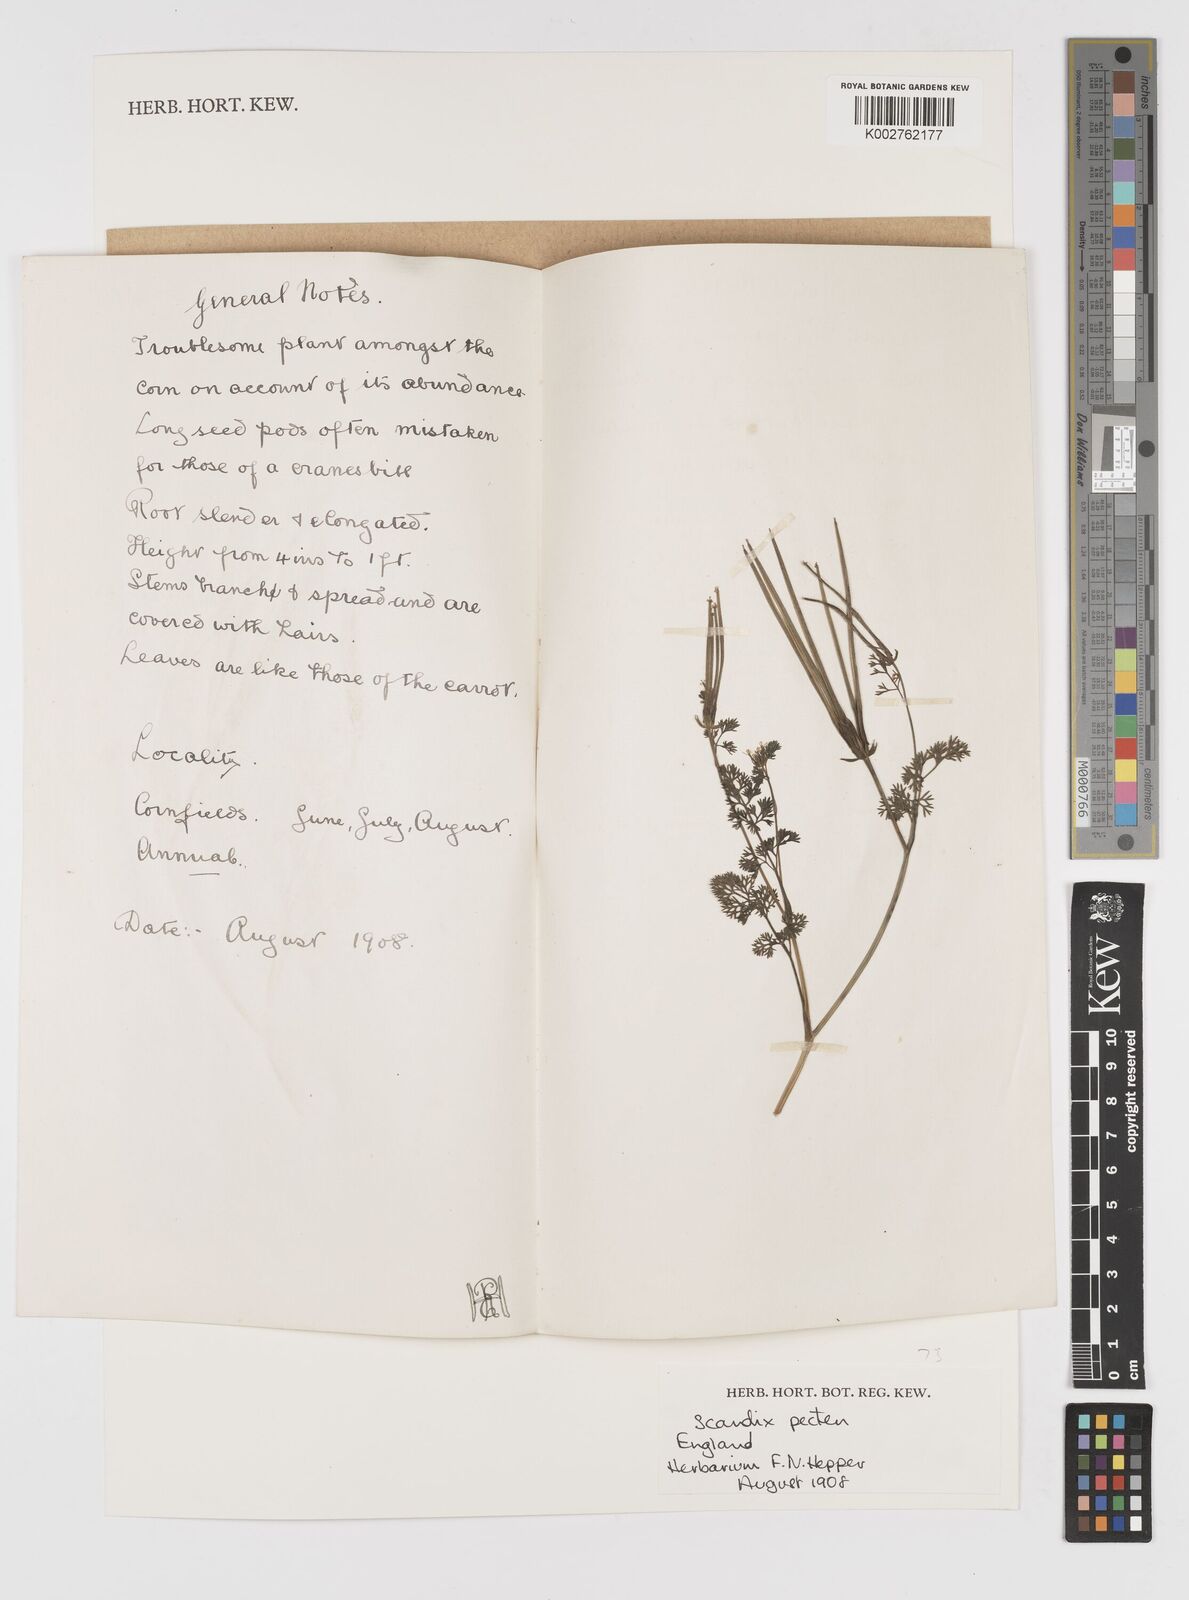 HERB. HORT. KEW.
ROYAL BOTANIC GARDENS KEW
K002762177
General Notes.
Troublesome plant amongst the
corn on account of its abundance.
Long seed pods often mistaken
for those of a cranesbill
Root slender & elongated.
Height from 4 ins to 1 ft.
Stems branch & spread and are
covered with hairs.
Leaves are like those of the carrot.
Locality.
Cornfields. June, July, August.
Annual.
Date:- August 1908.
73
HERB. HORT. BOT. REG. KEW.
Scandix pecten
England
Herbarium F.N. Hepper
August 1908
inches
Density
Don Williams
M000766
centimeters
Kew
Royal Botanic Gardens
0 1 2 3 4 5 6 7 8 9 10
cm
copyright reserved